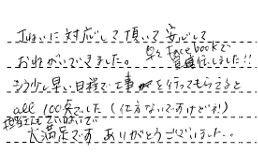 ていねいに対応して頂いて安心して
おねがいできました。早々facebookで
宣伝しました!!
もう少し早い日程で工事を行ってもらえると
all 100点でした(仕方ないですけどネ!)
ていねいで
大満足です ありがとうございました。